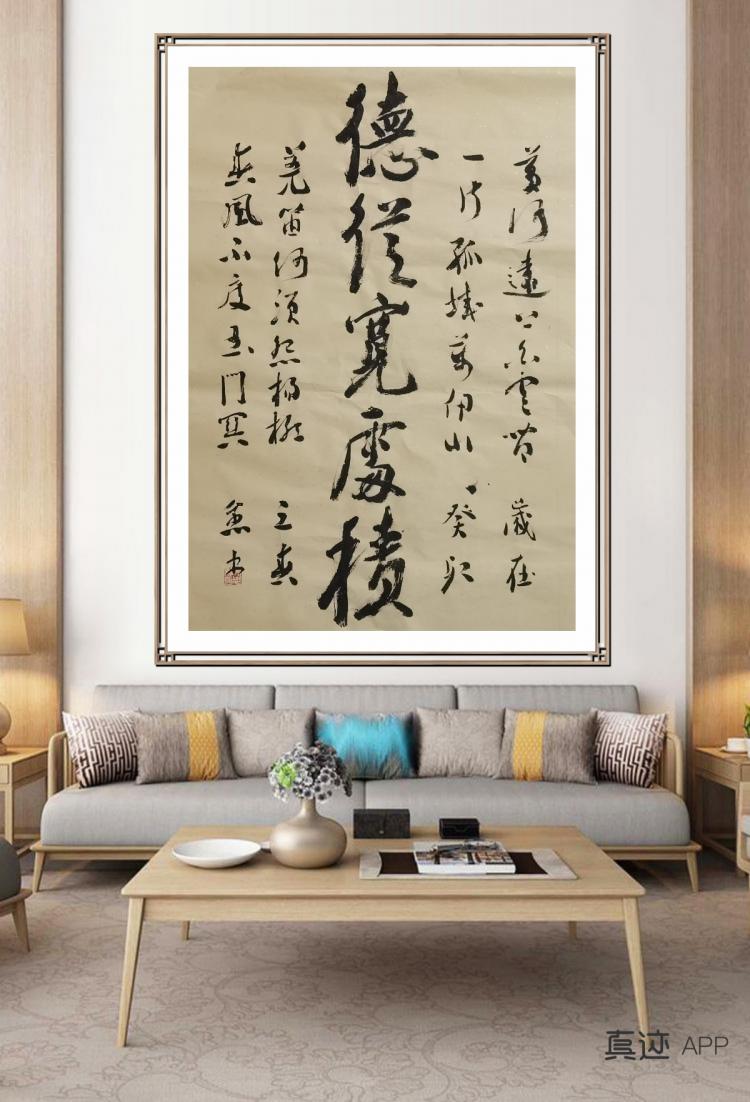 黄河遠上白雲間 歲在
一片孤城萬仞山 癸卯
德從寬處積
羌笛何須怨楊柳 立春
春風不度玉門關 書
真迹 APP